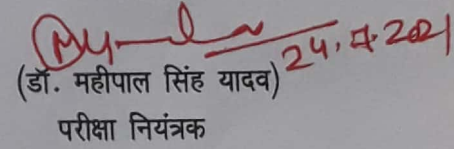 24.
2021
(डॉ. महीपाल सिंह यादव)
परीक्षा नियंत्रक